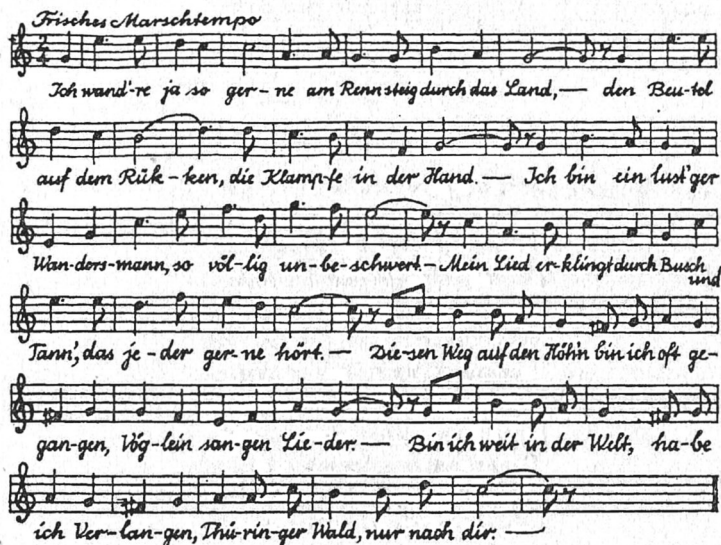 Frisches Marschtempo
2 4
Ich wand'-re ja so ger-ne am Rennsteig durch das Land, — den Beu-tel
auf dem Rük-ken, die Klamp-fe in der Hand. — Ich bin ein lust'ger
Wan-ders-mann, so völ-lig un-be-schwert. — Mein Lied er-klingt durch Busch
und
Tann', das je-der ger-ne hört. — Die-sen Weg auf den Höh'n bin ich oft ge-
gan-gen, Vög-lein san-gen Lie-der. — Bin ich weit in der Welt, ha-be
ich Ver-lan-gen, Thü-rin-ger Wald, nur nach dir. —